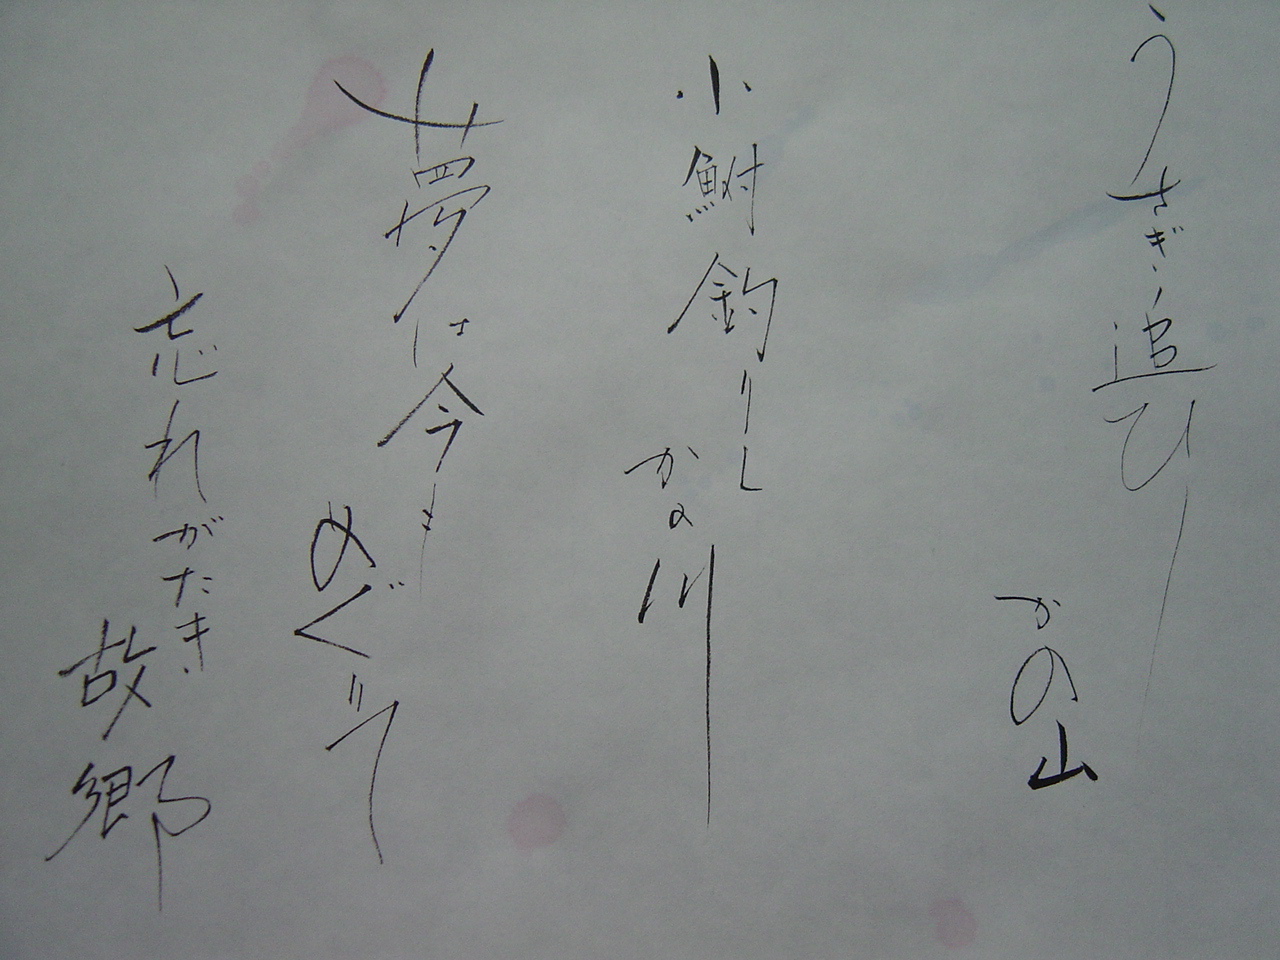 うさぎ追ひ
かの山
小鮒釣りし
かの川
夢は今も
めぐりて
忘れがたき
故郷